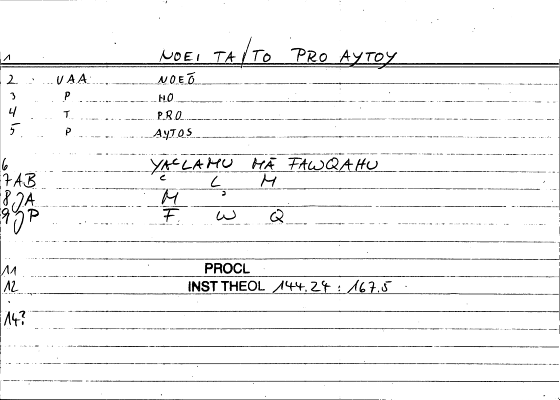 1 NOEI TA/TO PRO AYTOY
2 VAA NOEŌ
3 P HO
4 T PRO
5 P AYTOS
6 YAᶜLAMU MĀ FAWQAHU
7 AB ᶜ L M
8 JA M ʾ
9 JP F W Q
11 PROCL
12 INST THEOL 144.24 : 167.5
14?